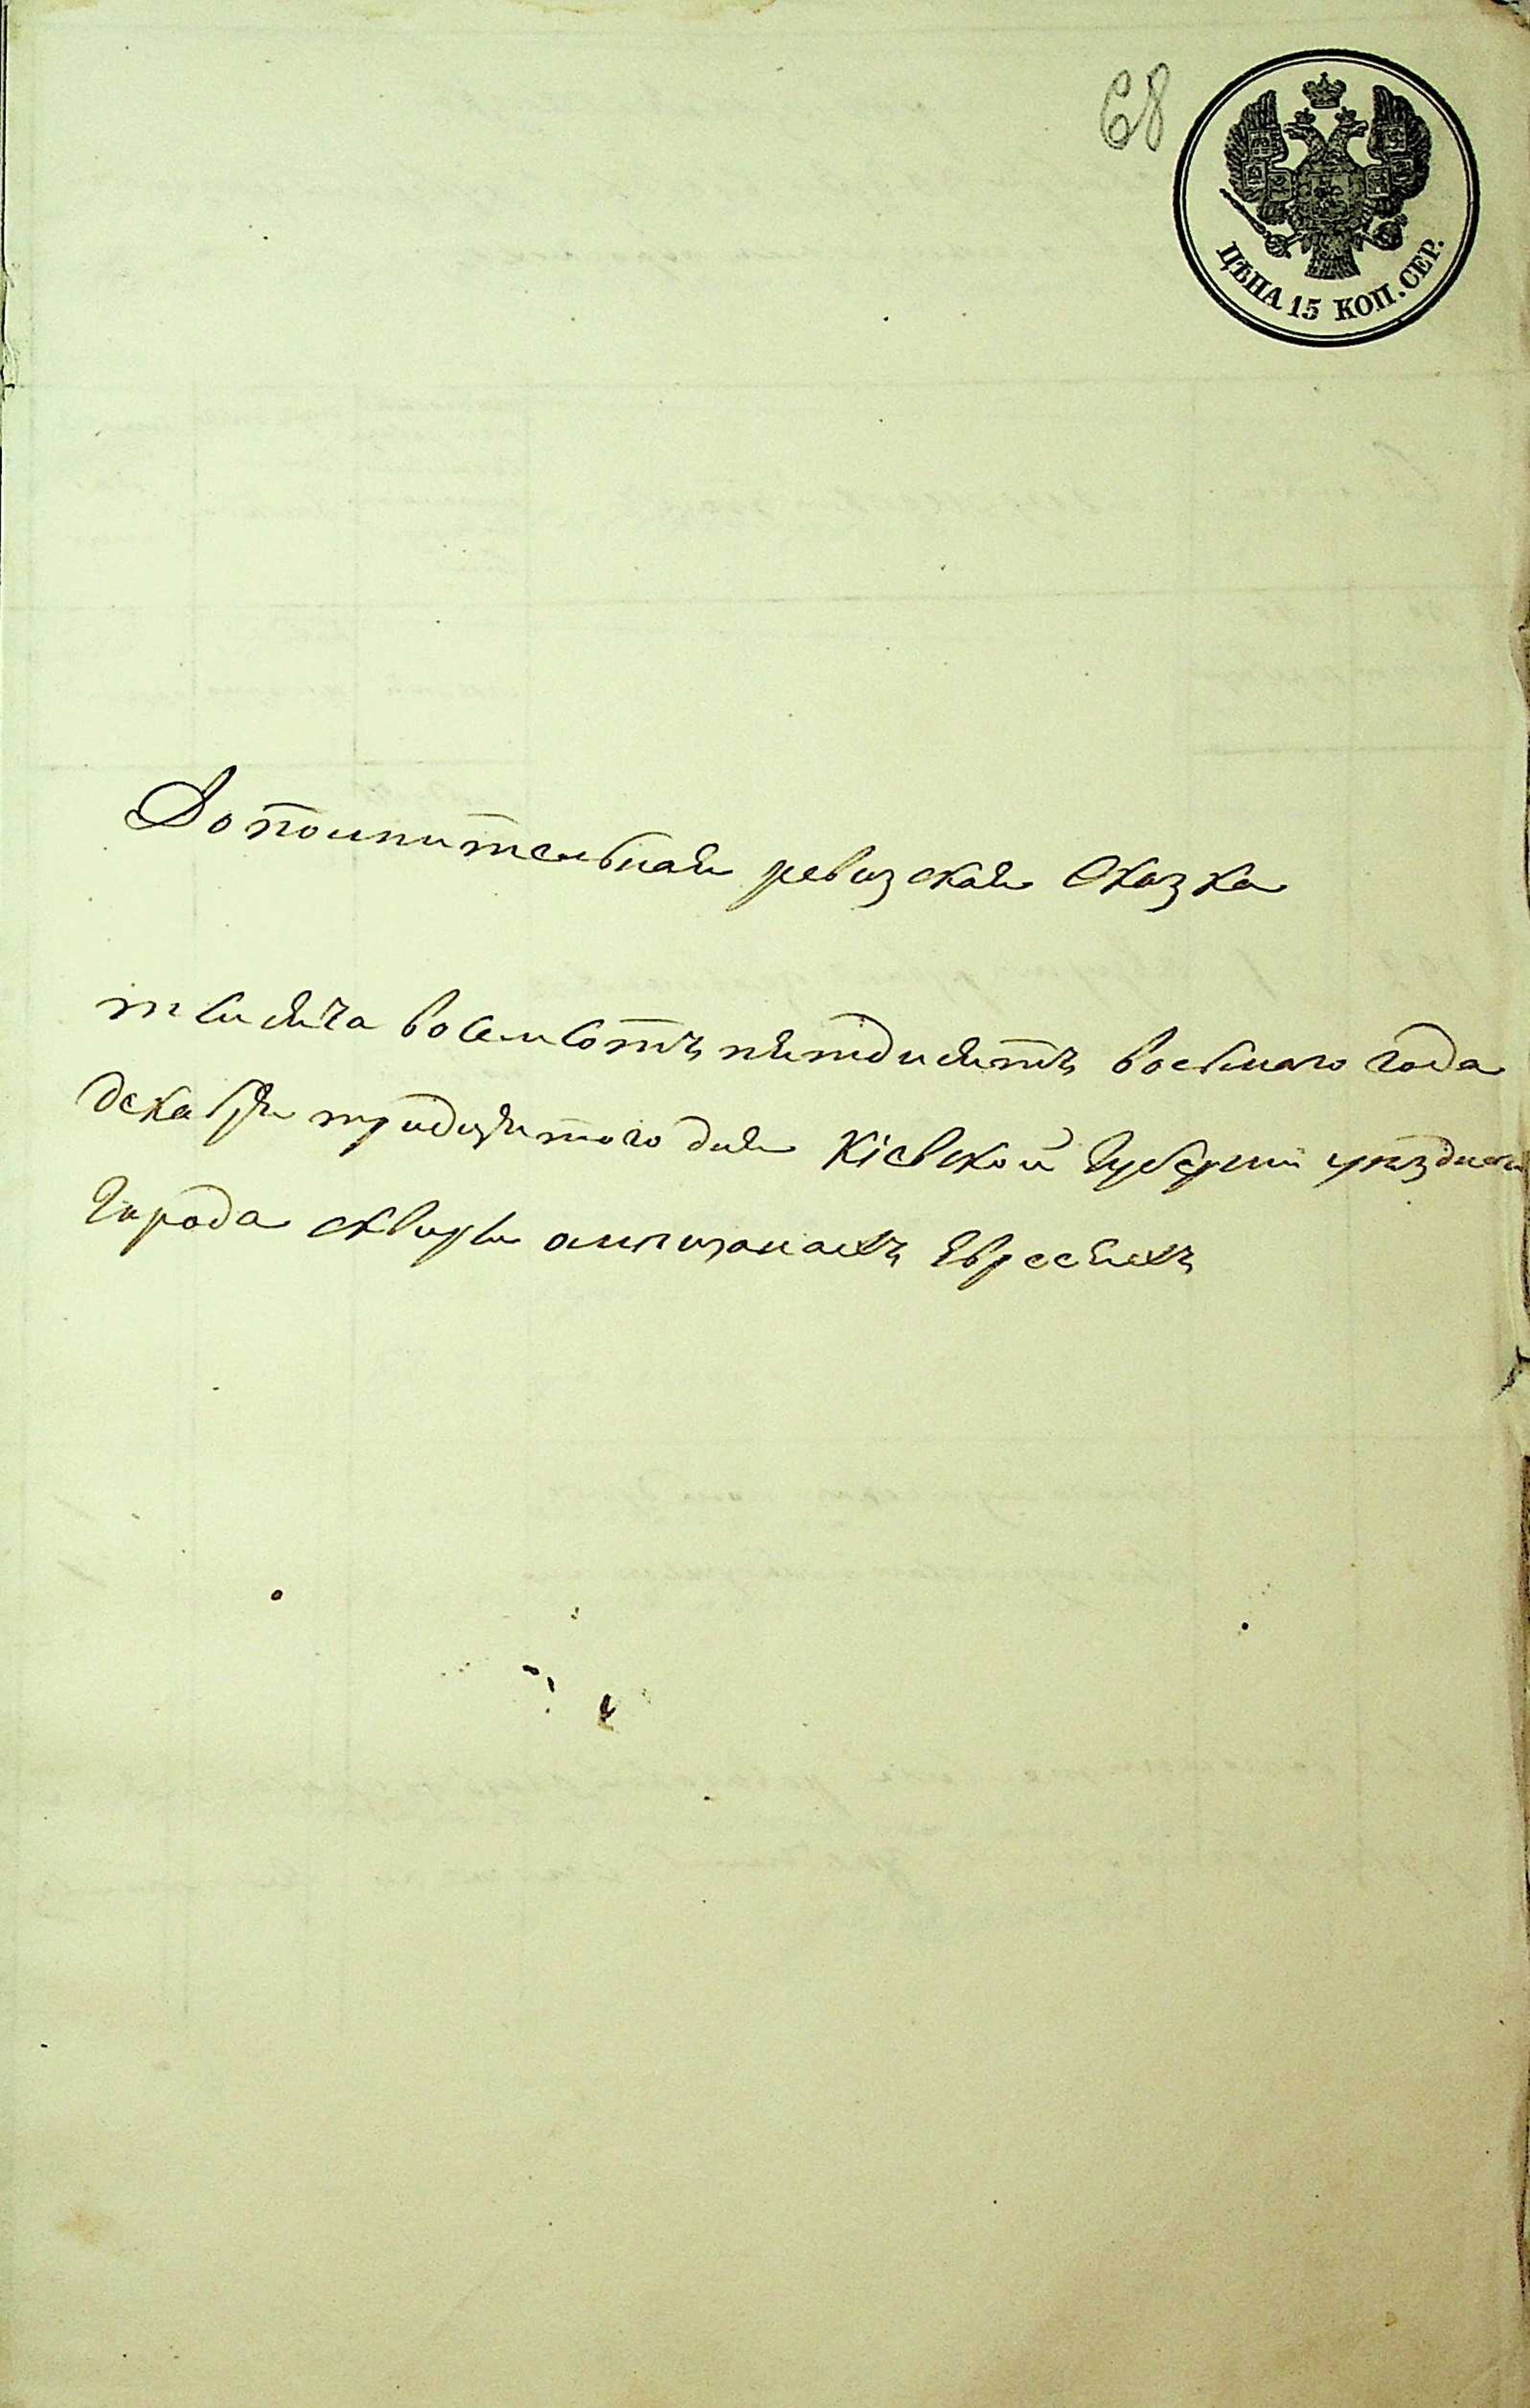 68
ЦѢНА 15 КОП. СЕР.
Дополнительная ревизская Сказка
тысяча восемсотъ пятдисятъ восьмаго года
декабря тридцятого дня Кіевской Губерніи уѣздного
Города сквиры омещанахъ Евреяхъ